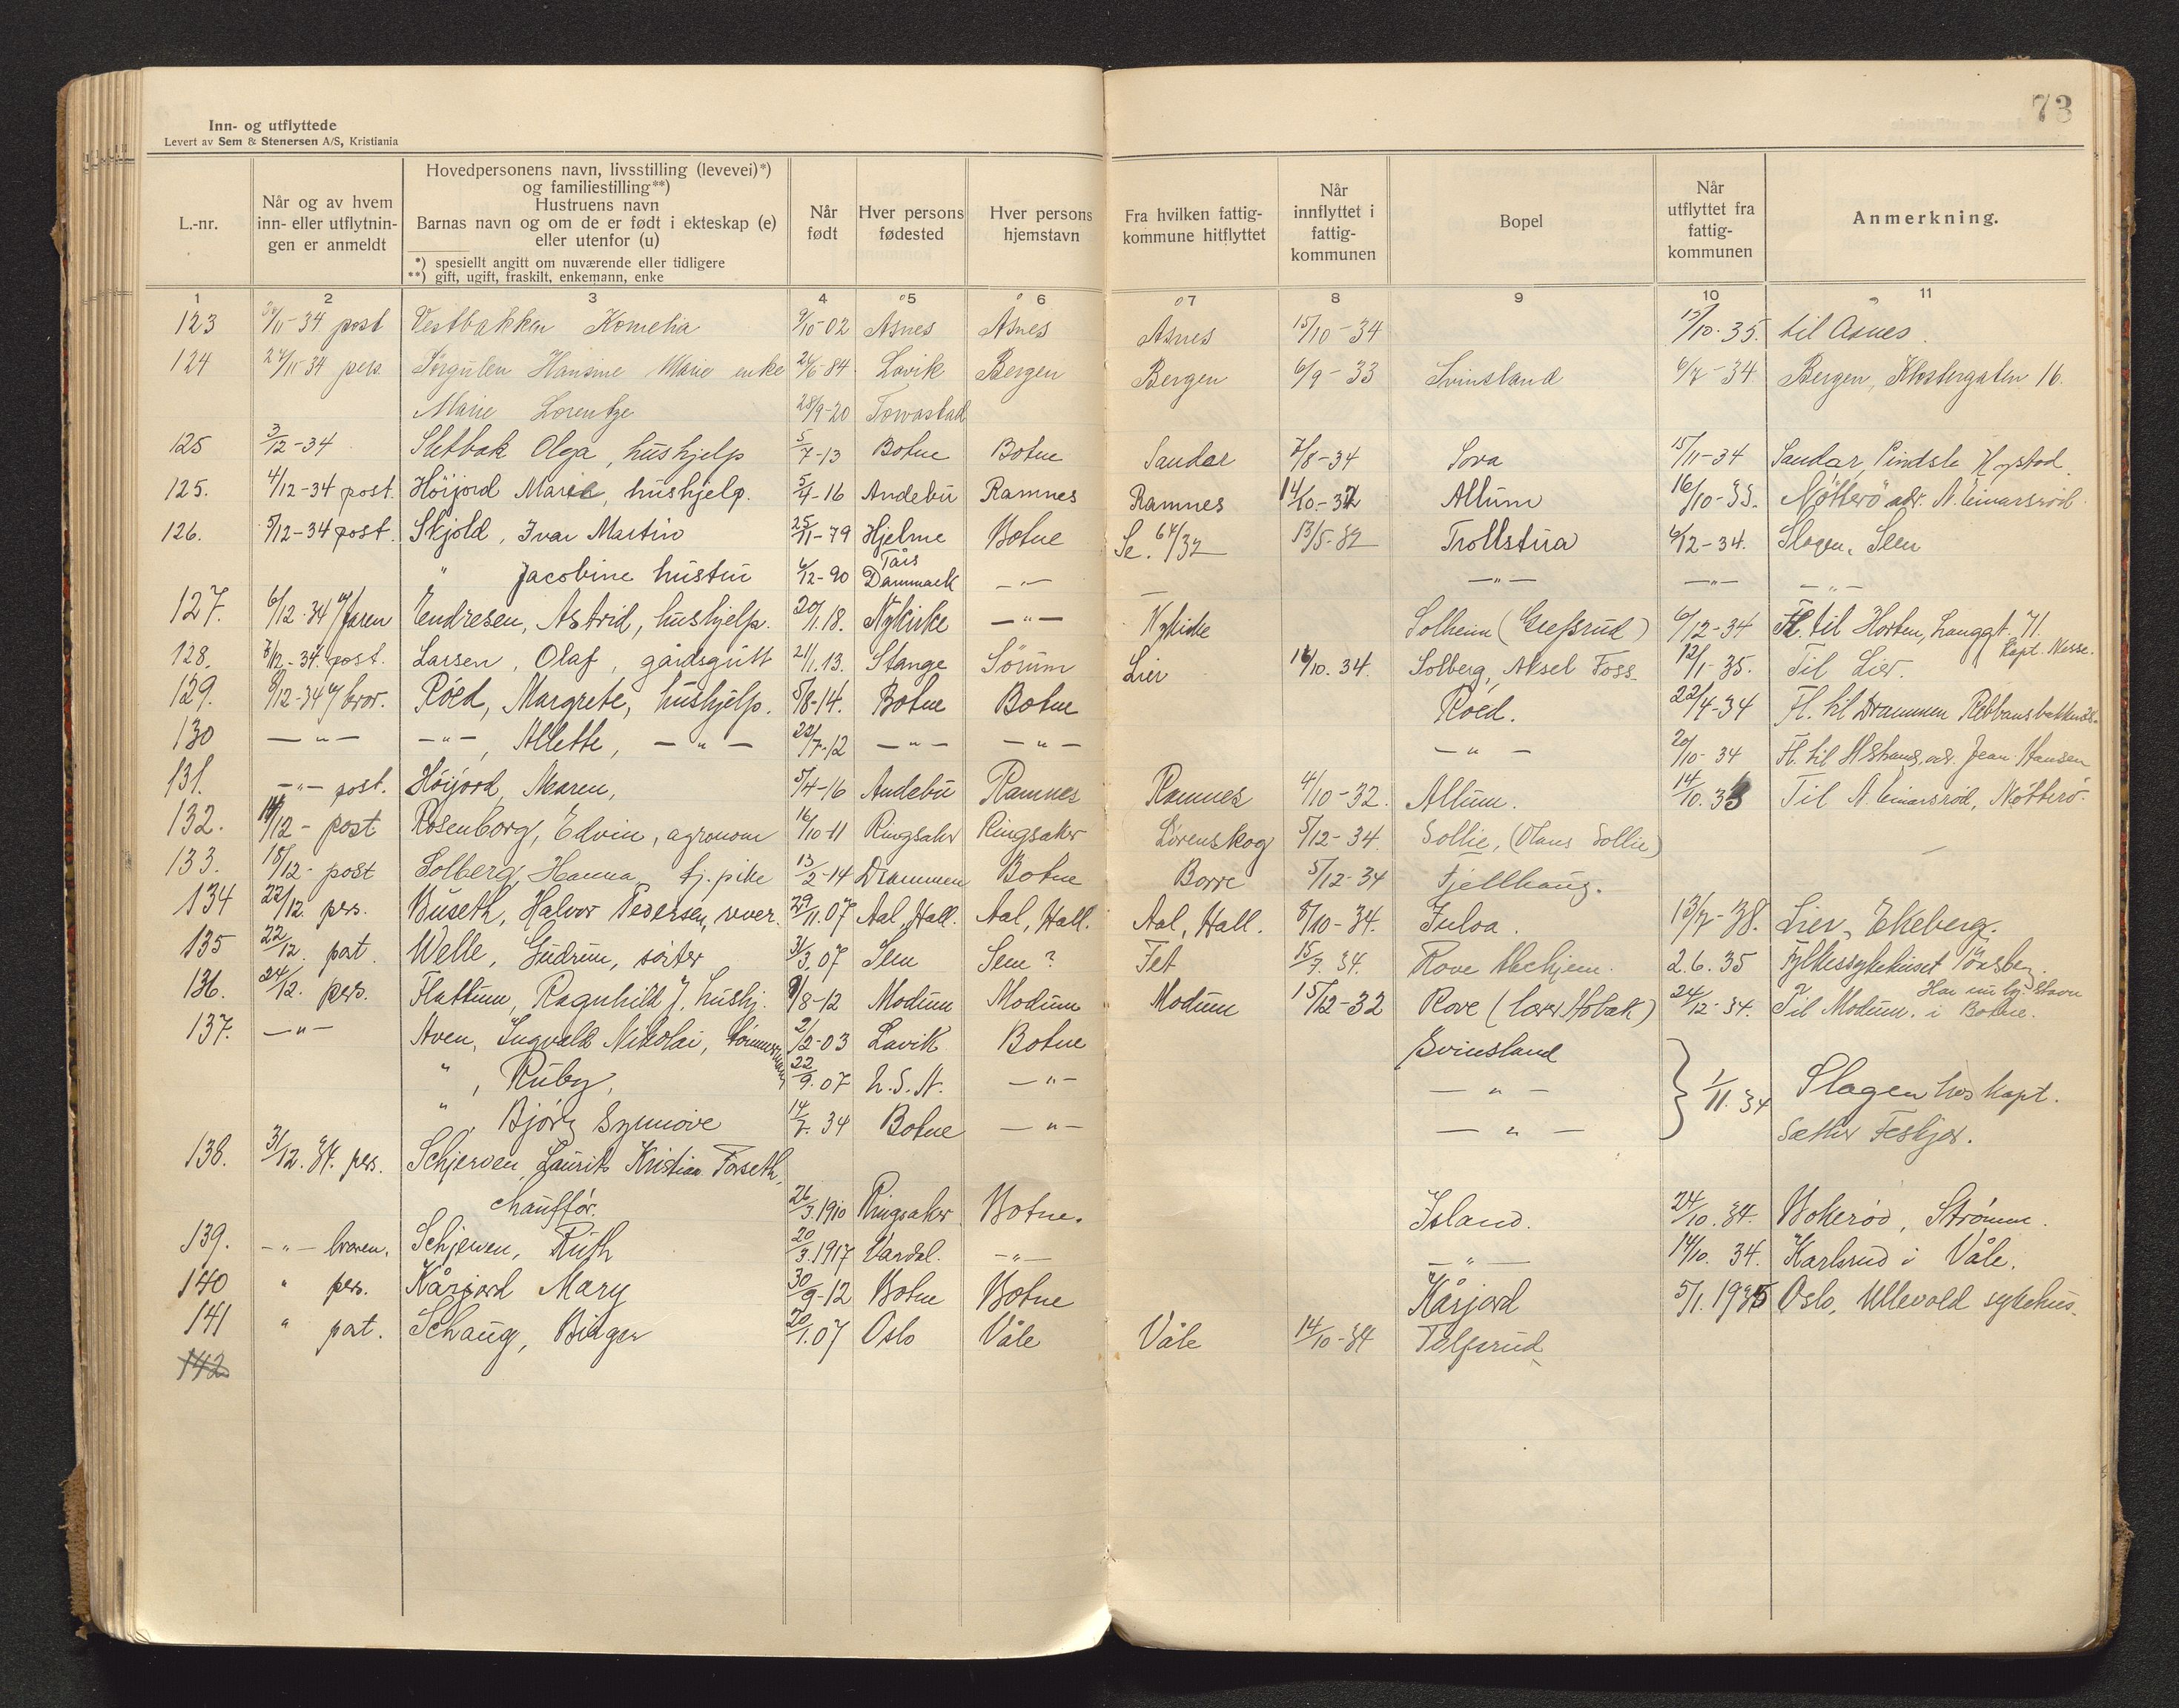 73
Inn- og utflyttede
Levert av Sem & Stenersen A/S, Kristiania
L.-nr. | Når og av hvem inn- eller utflytnin- gen er anmeldt | Hovedpersonens navn, livsstilling (levevei)*) og familiestilling**) Hustruens navn Barnas navn og om de er født i ekteskap (e) eller utenfor (u) *) spesiellt angitt om nuværende eller tidligere **) gift, ugift, fraskilt, enkemann, enke | Når født | Hver persons fødested | Hver persons hjemstavn | Fra hvilken fattig- kommune hitflyttet | Når innflyttet i fattig- kommunen | Bopel | Når utflyttet fra fattig- kommunen | Anmerkning.
1 | 2 | 3 | 4 | 5 | 6 | 7 | 8 | 9 | 10 | 11
123 | /11-34 post | Vestbakken Kornelia | 9/10-02 | Åsnes | Åsnes | Åsnes | 15/10-34 | | 15/10-35. | til Åsnes.
124 | 27/11-34 pers. | Sørgulen Hansine Marie enke | 24/6-84 | Lavik | Bergen | Bergen | 6/9-33 | Svinsland | 6/7-34 | Bergen, Klostergaten 16.
Marie Lorentze | 28/9-20 | Torvastad
125 | 3/12-34 | Sletbak Olga, hushjelp | 5/7-13 | Botne | Botne | Sandar | 7/8-34 | Sova | 15/11-34 | Sandar, Pindsle
125. | 4/12-34 post. | Höijord Marie, hushjelp. | 5/4-16 | Andebu | Ramnes | Ramnes | 14/10-32 | Allum | 16/10-33. | Nötterö adr. N. Einarsröd.
126. | 5/12-34 post. | Skjold, Ivar Martin | 25/11-79 | Hjelme | Botne | Se. 64/32 | 13/5-32 | Trollstua | 6/12-34. | Slagen, Sem
" Jacobine hustru | 6/12-90 | Tårs Danmark | -"- | — | | -"- | -"- | -"-
127. | 6/12-34 faren | Endresen, Astrid, hushjelp. | 20/1.18. | Nykirke | -"- | Nykirke | | Solheim (Grefsrud) | 6/12-34 | Fl. til Horten, Langgt. 71. Kapt. Nesse.
128. | 7/12-34. post. | Larsen, Olaf, gårdsgutt | 21/1.13. | Stange | Sörum | Lier | 16/10.34. | Solberg, Aksel Foss. | 12/1-35. | Til Lier.
129. | 8/12-34 bror. | Röed, Margrete, hushjelp. | 5/8-14. | Botne | Botne | | | Röed. | 22/4-34 | Fl. til Drammen Rebbansbakken
130 | -"- | -"-, Allette, -"- | 22/7-12 | -"- | -"- | | | -"- | 20/10-34 | Fl. til Hstrand, adr. Jean Hansen
131. | -"- post. | Höijord, Maren, | 5/4-16 | Andebu | Ramnes | Ramnes | 4/10-32. | Allum. | 14/10.33 | Til N. Einarsröd, Nötterö.
132. | 14/12- post | Rosenborg, Edvin, agronom | 16/10-11 | Ringsaker | Ringsaker | Lörenskog | 5/12-34. | Sollie, (Olaus Sollie)
133. | 18/12- post | Solberg, Hanna tj. pike | 13/2-14 | Drammen | Botne | Borre | 5/12-34 | Fjellhaug. | | —
134 | 22/12. pers. | Buseth, Halvor Pedersen, | 29/11.07 | Aal, Hall. | Aal, Hall. | Aal, Hall. | 8/10-34. | Fuloa. | 13/7-38. | Lier, Ekeberg.
135 | 22/12. post. | Welle, Gudrun, söster | 31/3.07 | Sem | Sem? | Fet | 15/7.34. | Rove | 2.6.35 | Fylkessykehuset Tönsberg
136. | 24/12. pers. | Flattum, Ragnhild J. hushj. | 9/8-12 | Modum | Modum | Modum | 15/12-32 | Rove (lærer Holbæk) | 24/12-34. | Til Modum. i Botne.
137. | -"- | Aven, Ingvald Nikolai, tömmermann | 2/2-03 | Lavik | Botne | | | Svinsland
", Ruby, | 22/9.07 | U.S.A. | -"- | | | -"- | 1/11.34 | Slagen hos Kapt.
", Björg Synnöve | 14/7.34 | Botne | -"- | | | -"- | | Sæther Feskjær.
138. | 31/12.34. pers. | Schjerven, Laurits Kristian Forseth,
chauffør. | 26/3.1910 | Ringsaker | Botne. | | | Island. | 24/10.34. | Bokeröd, Strömm.
139. | -"- broren. | Schjerven, Ruth | 20/3.1917 | Vardal. | -"- | | | -"- | 14/10.34. | Karlsrud i Våle.
140 | " pers. | Kårjord Mary | 30/9-12 | Botne | Botne | | | Kårjord | 5/1.1935 | Oslo, Ullevold sykehus.
141 | " post. | Schaug, Birger | 20/1.07 | Oslo | Våle | Våle | 14/10-34 | Tolfsrud
142